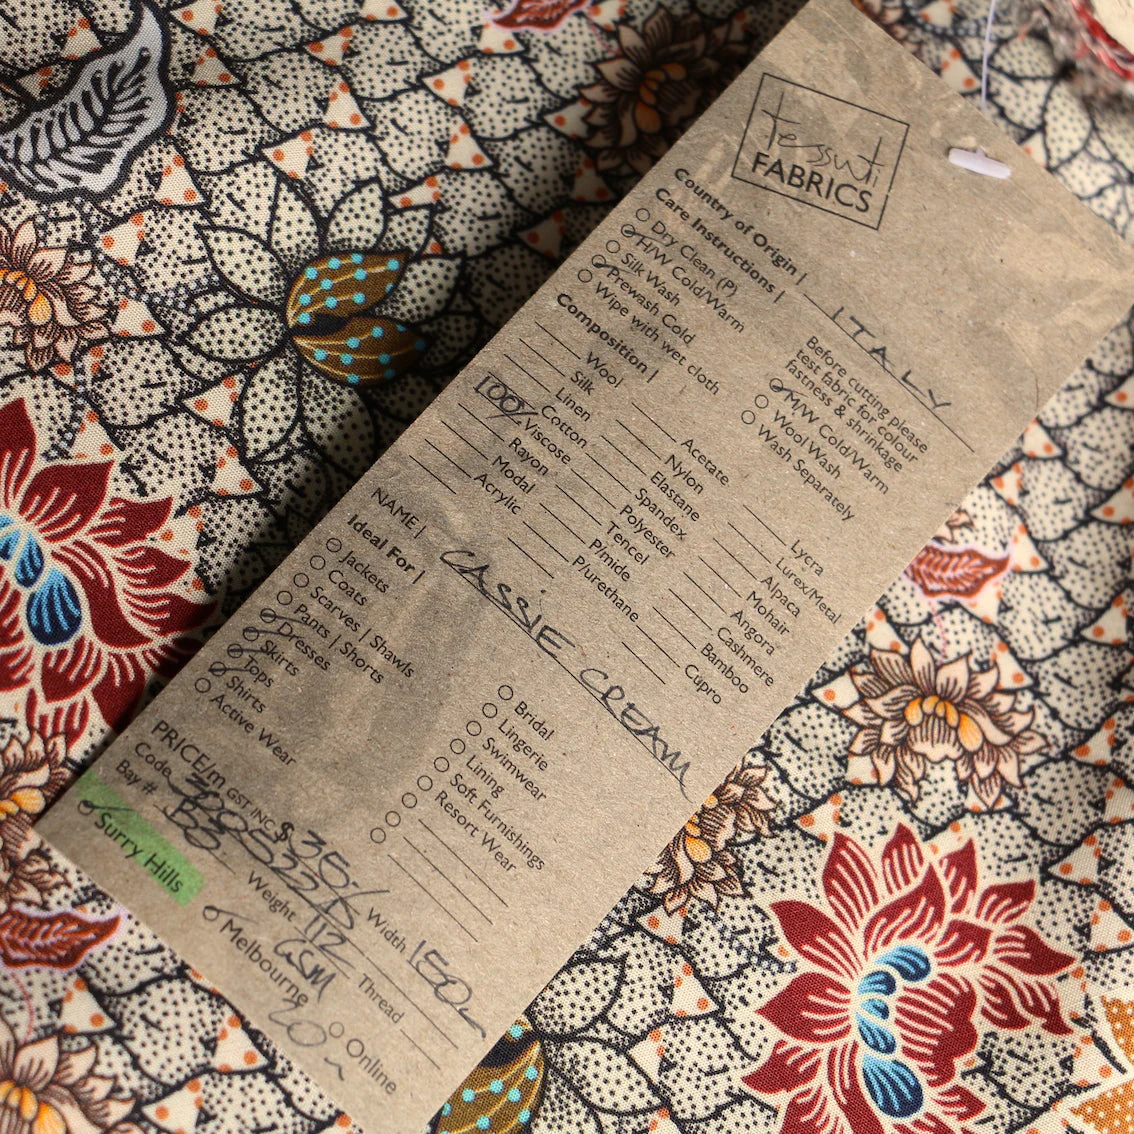 tessuti
FABRICS
Country of Origin | ITALY
Care Instructions |
Before cutting please
test fabric for colour
fastness & shrinkage
Dry Clean (P)
H/W Cold/Warm
Silk Wash
Prewash Cold
Wipe with wet cloth
M/W Cold/Warm
Wool Wash
Wash Separately
Composition |
Wool
Silk
Linen
100% Cotton
Viscose
Rayon
Modal
Acrylic
Acetate
Nylon
Elastane
Spandex
Polyester
Tencel
P/mide
P/urethane
Lycra
Lurex/Metal
Alpaca
Mohair
Angora
Cashmere
Bamboo
Cupro
NAME | CASSIE CREAM
Ideal For |
Jackets
Coats
Scarves | Shawls
Pants | Shorts
Dresses
Skirts
Tops
Shirts
Active Wear
Bridal
Lingerie
Swimwear
Lining
Soft Furnishings
Resort Wear
PRICE/m GST INC $35-/ Width 150
Code
Weight 112 GSM Thread
Bay # B3
Surry Hills
Melbourne
Online